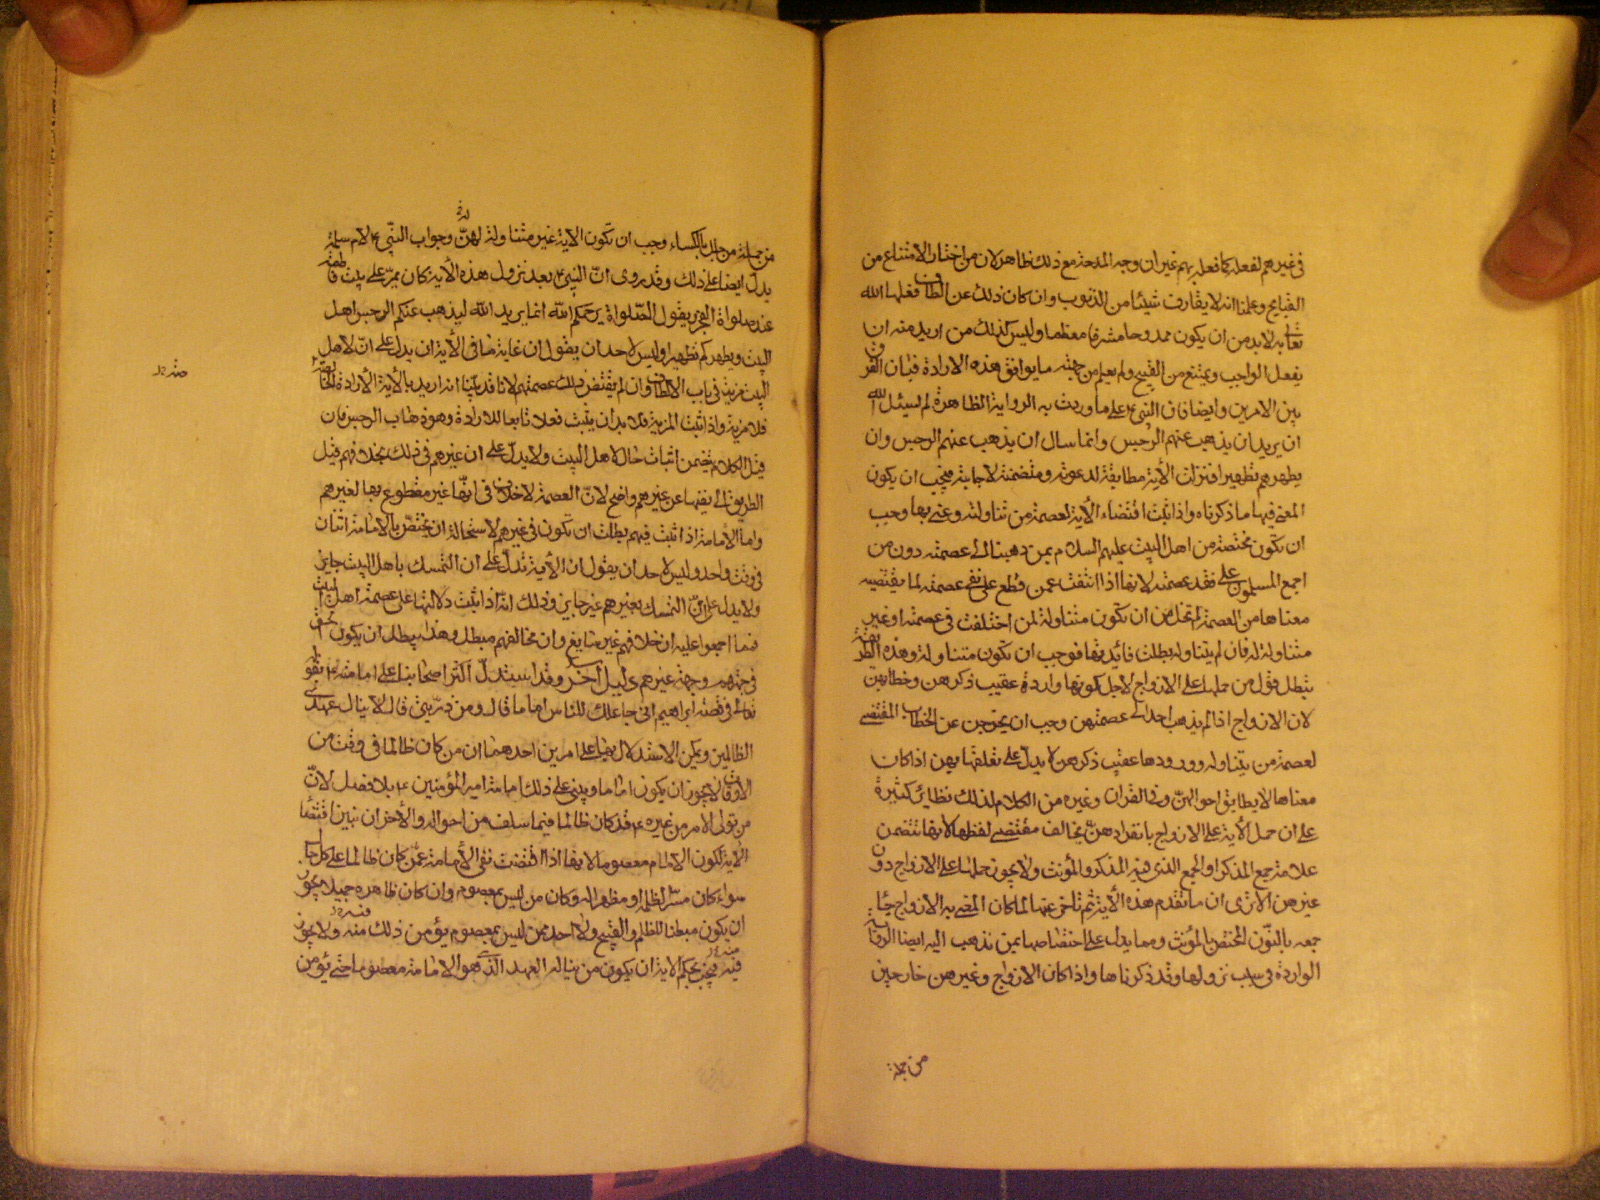 في غيرهم لفعله كما فعله بهم غير ان وجه المدحة مع ذلك ظاهر لان من اختار الامتناع من
القبايح وعلمنا انه لا يقارف شيئا من الذنوب وان كان ذلك عن الطاف فعلها الله
تعالى به لابد من ان يكون ممدوحا مشرفا معظما وليس كذلك من اريد منه ان
يفعل الواجب ويمتنع من القبيح ولم يعلم من جهته ما يوافق هذه الارادة فبان الفرق
بين الامرين وايضا فان النبي ع على ما وردت به الرواية الظاهرة لم يسئل الله
ان يريد ان يذهب عنهم الرجس وانما سال ان يذهب عنهم الرجس وان
يطهرهم تطهيرا فنزلت الآية مطابقة لدعوته ومتضمنة لاجابته فيجب ان يكون
المعنى فيها ما ذكرناه واذا ثبت اقتضاء الآية لعصمة من تناولته وعنى بها وجب
ان تكون مختصة من اهل البيت عليهم السلام بمن ذهبنا الى عصمته دون من
اجمع المسلمون على فقد عصمته لانها اذا انتفت عمن قطع على نفي عصمته لما يقتضيه
معناها من العصمة لم تخل من ان تكون متناولة لمن اختلفت في عصمته او غير
متناولة له فان لم يتناوله بطلت فائدتها فوجب ان تكون متناولة وهذه الطريقة
تبطل قول من حملها على الازواج لاجل كونها واردة عقيب ذكرهن وخطابهن
لان الازواج اذا لم يذهب احد الى عصمتهن وجب ان يخرجن عن الخطاب المقتضي
لعصمة من يتناوله وورودها عقيب ذكرهن لا يدل على تعلقها بهن اذا كان
معناها لا يطابق احوالهن وفي القران وغيره من الكلام لذلك نظاير كثيرة
على ان حمل الآية على الازواج بانفرادهن يخالف مقتضى لفظها لانها تتضمن
علامة جمع المذكر او الجمع الذي فيه المذكر والمؤنث ولا يجوز حملها على الازواج دون
غيرهن الا ترى ان ما تقدم هذه الآية ثم تاخر عنها لما كان المعنى به الازواج جاء
جمعه بالنون المختص المؤنث ومما يدل على اختصاصها بمن نذهب اليه ايضا الرواية
الواردة في سبب نزولها وقد ذكرناها واذا كان الازواج وغيرهن خارجين
من جملة
من جملة من جلل بالكساء وجب ان تكون الآية غير متناولة لهن وجواب النبي ع لام سلمة
يدل ايضا على ذلك وقد روى ان النبي ع بعد نزول هذه الآية كان يمر على بيت فاطمة
عند صلواة الفجر يقول الصلواة يرحمكم الله انما يريد الله ليذهب عنكم الرجس اهل
البيت ويطهركم تطهيرا وليس لاحد ان يقول ان غاية ما في الآية ان يدل على ان لاهل
البيت مزية في باب الالطاف وان لم يقتض ذلك عصمتهم لانا قد بينا انه اريد بالآية الارادة
فلا مزية واذا ثبت المزية فلا بد ان يثبت فعلا تابعا للارادة وهو ذهاب الرجس فان
قيل الكلام تضمن اثبات حال لاهل البيت ولا يدل على ان غيرهم في ذلك بخلافهم قيل
الطريق الى نفيها عن غيرهم واضح لان العصمة لا خلاف في انها غير مقطوع بها لغيرهم
واما الامامة اذا ثبت فيهم بطلت ان تكون في غيرهم لاستحالة ان يختص بالامامة اثنان
في وقت واحد وليس لاحد ان يقول ان الآية تدل على ان التمسك باهل البيت جايز
ولا يدل على ان التمسك بغيرهم غير جايز وذلك انه اذا ثبت دلالتها على عصمة اهل البيت
فما اجمعوا عليه ان خلافهم غير سايغ وان مخالفهم مبطل وهذا يبطل ان يكون الحق
في جهتهم وجهة غيرهم دليل آخر وقد استدل اكثر اصحابنا على امامته ع بقوله
تعالى في قصة ابراهيم اني جاعلك للناس اماما قال ومن ذريتي قال لا ينال عهدي
الظالمين ويمكن الاستدلال بها على امرين احدهما ان من كان ظالما في وقت من
الاوقات لا يجوز ان يكون اماما ويبنى على ذلك امامة امير المؤمنين ع بلا فصل لان
من تولى الامر من غيره ع قد كان ظالما فيما سلف من احواله والآخر ان نبين اقتضاء
الآية لكون الامام معصوما لانها اذا اقتضت نفي الامامة عمن كان ظالما على كل حال
سواء كان مسرا لظلمه او مظهرا له وكان من ليس بمعصوم وان كان ظاهره جميلا يجوز
ان يكون مبطنا للظلم والقبيح ولا احد ممن ليس بمعصوم يؤمن ذلك منه ولا يجوز
فيه فيجب بحكم الآية ان يكون من يناله العهد الذي هو الامامة معصوما حتى يؤمن